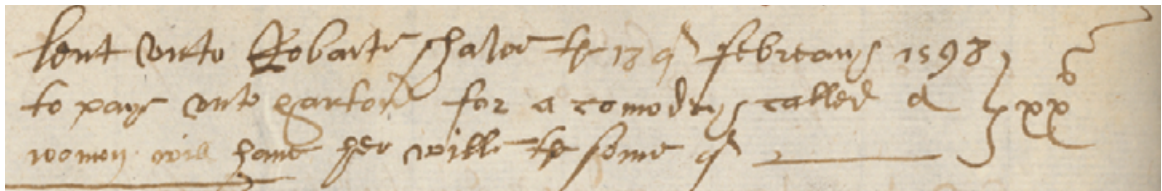 lent vnto Robarte shaloe the 12 of febreary 1598
to paye vnto harton for a comodey called A xxs
womon will haue her wille the some of